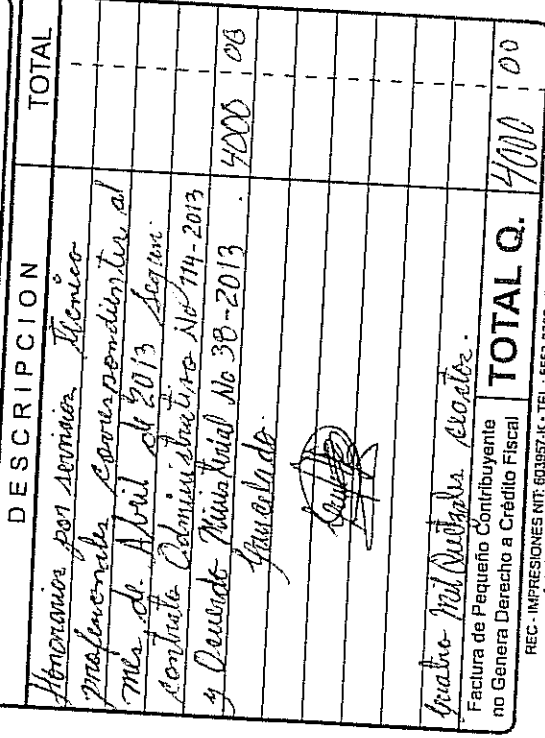 DESCRIPCION
TOTAL
Honorarios por servicios Técnico
profesionales correspondientes al
mes de Abril de 2013 según
contrato Administrativo No 114-2013
y Acuerdo Ministerial No 38-2013. 4000 00
Cancelado.
Cuatro Mil Quetzales exactos.
Factura de Pequeño Contribuyente
no Genera Derecho a Crédito Fiscal
TOTAL Q. 4000 00
REC - IMPRESIONES NIT: 603957-K • TEL.: